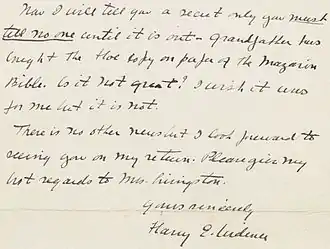 Now I will tell you a secret only you must
tell no one until it is out - Grandfather has
bought the Hoe copy on paper of the Mazarin
Bible. Is it not great? I wish it was
for me but it is not.
There is no other news but I look forward to
seeing you on my return. Please give my
best regards to Mrs. Livingston.
Yours sincerely
Harry E. Widener